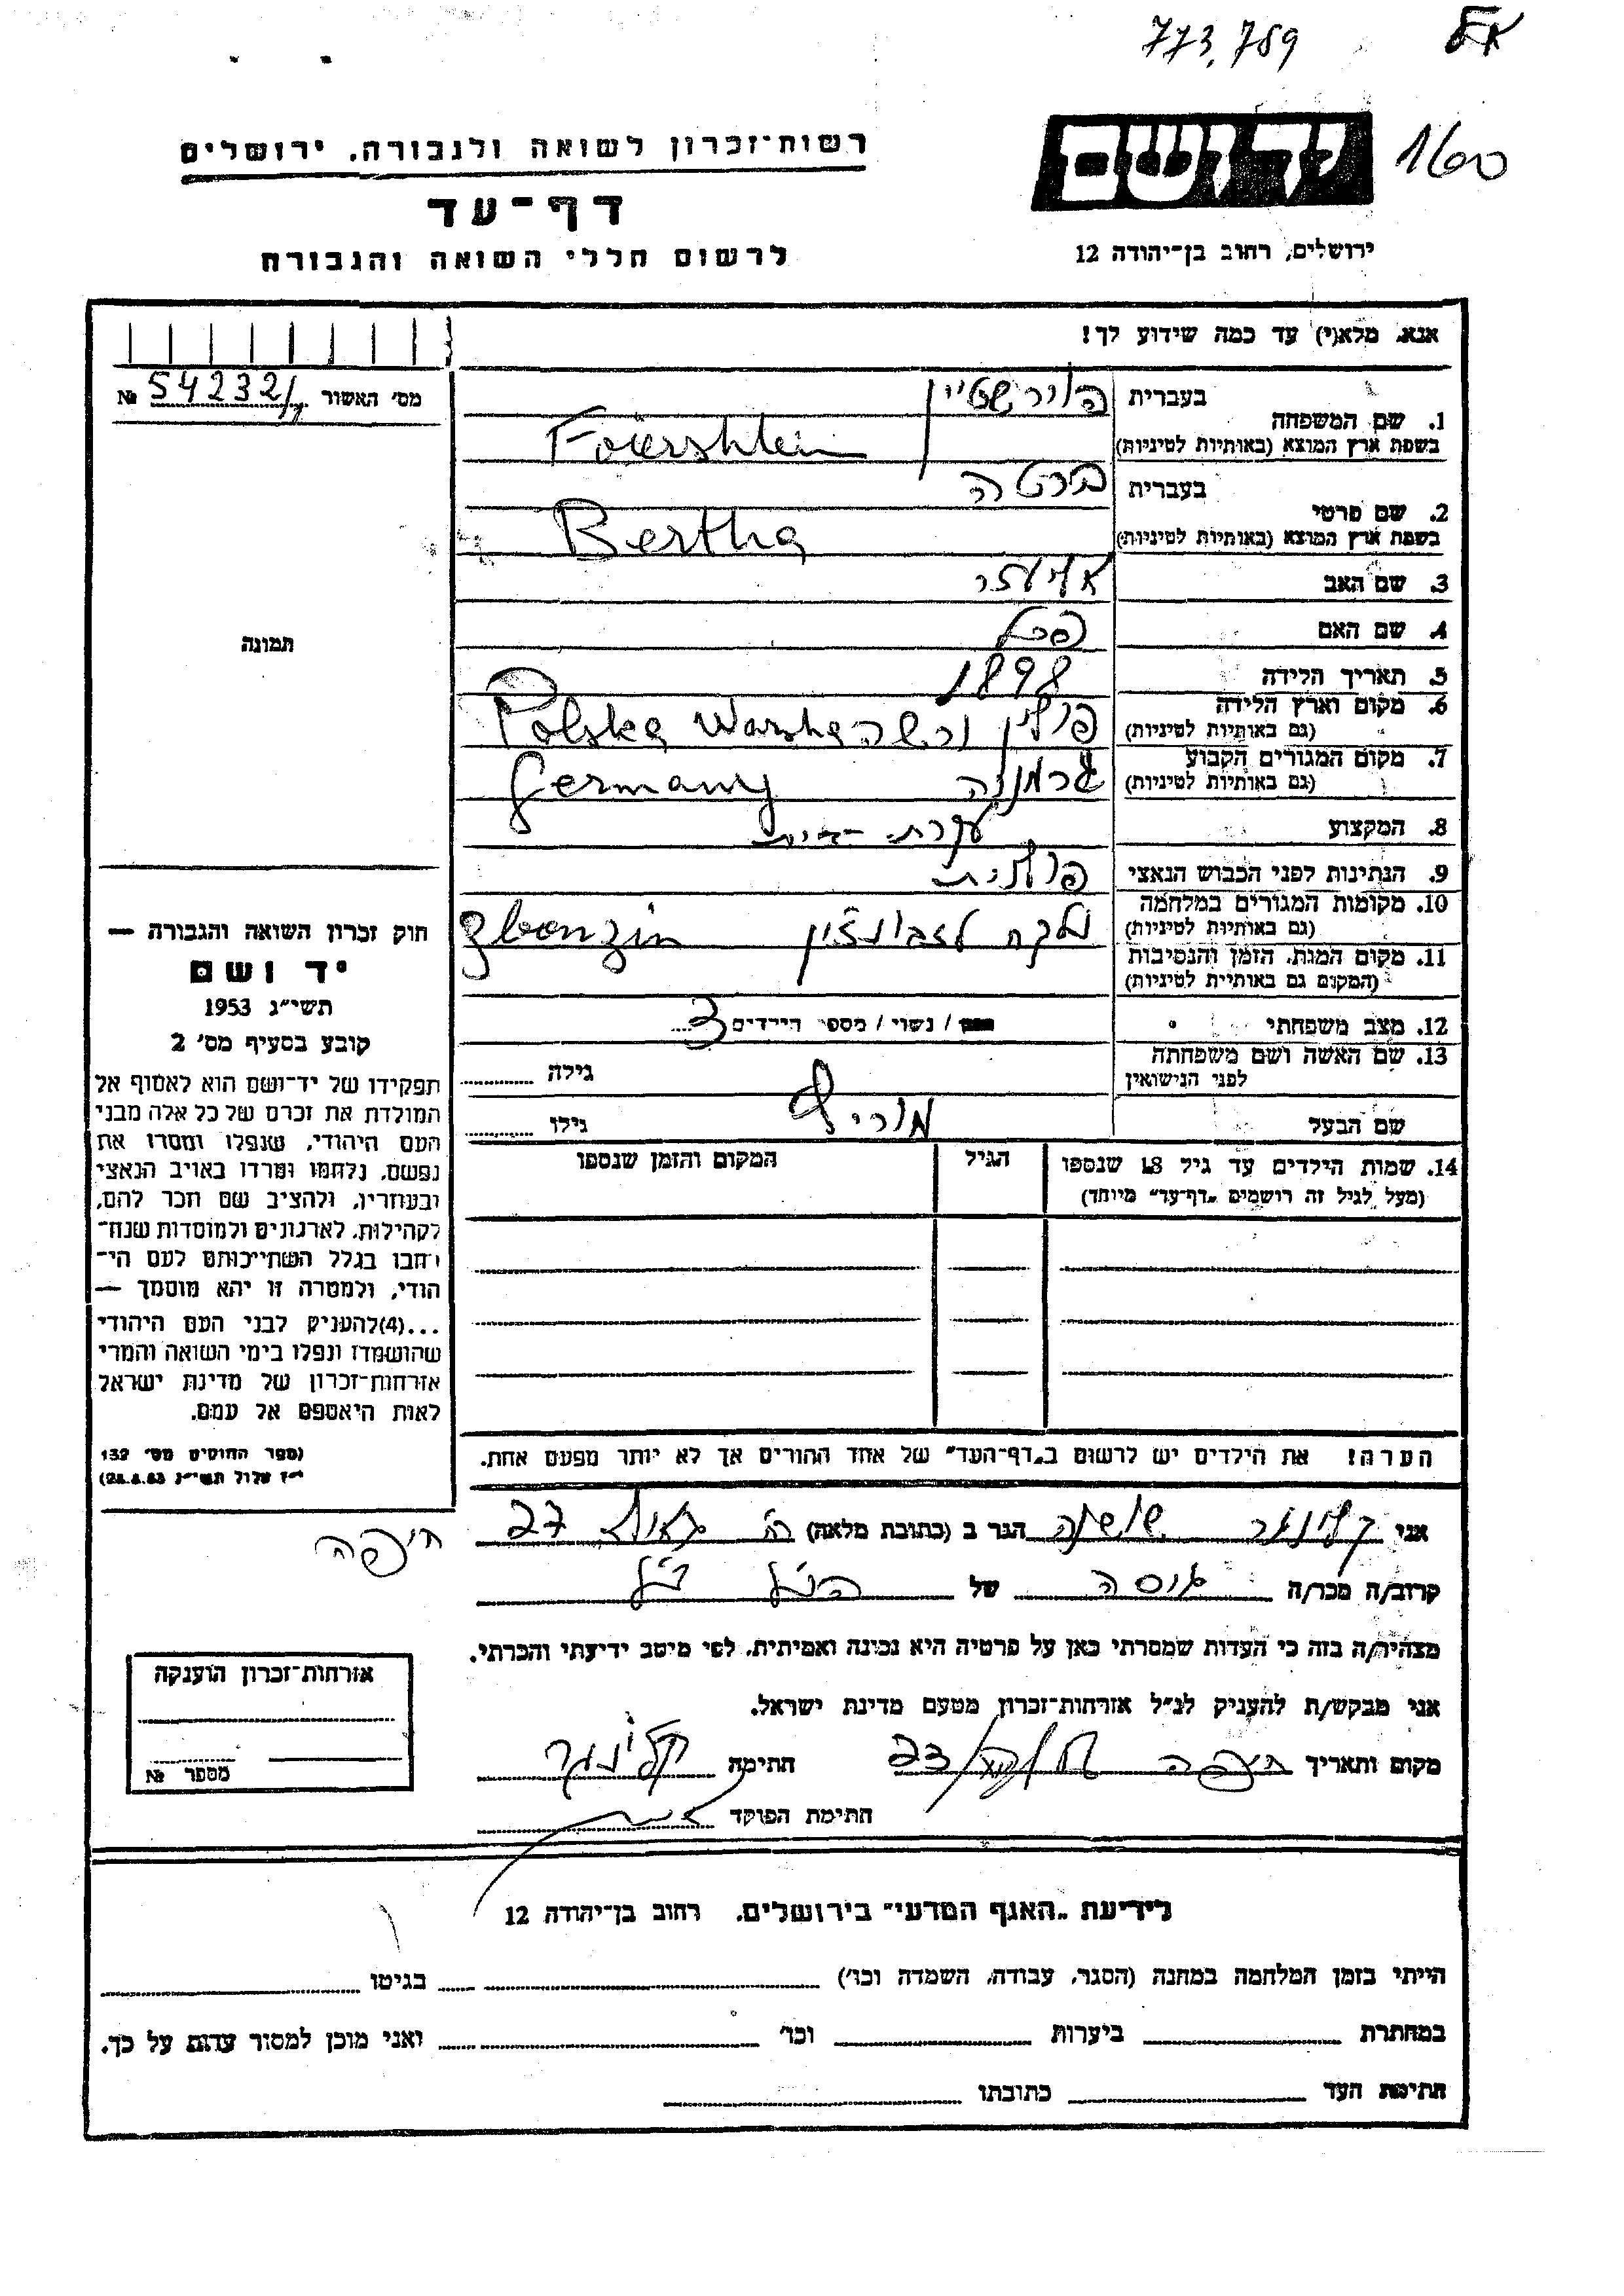 773,789
יד ושם
1600
רשות-זכרון לשואה ולגבורה, ירושלים
דף-עד
לרשום חללי השואה והגבורה
ירושלים, רחוב בן-יהודה 12
אנא, מלא(י) עד כמה שידוע לך!
מס׳ האשור 54232/ №
1. שם המשפחה
בעברית
בשפת ארץ המוצא (באותיות לטיניות) Foiershtein
2. שם פרטי
בעברית ברטה
בשפת ארץ המוצא (באותיות לטיניות) Bertha
3. שם האב
4. שם האם
5. תאריך הלידה 1898
6. מקום וארץ הלידה
(גם באותיות לטיניות) פולין ורשה Polska Warsha
7. מקום המגורים הקבוע
(גם באותיות לטיניות) גרמניה Germany
8. המקצוע עקרת-בית
9. הנתינות לפני הכבוש הנאצי פולנית
10. מקומות המגורים במלחמה
(גם באותיות לטיניות) נלקח לזבונצין Zbonzin
11. מקום המות, הזמן והנסיבות
(המקום גם באותיות לטיניות)
12. מצב משפחתי / נשוי / מספר הילדים 3
13. שם האשה ושם משפחתה
לפני הנישואין
גילה
שם הבעל מוריץ גילו
14. שמות הילדים עד גיל 18 שנספו
(מעל לגיל זה רושמים „דף-עד״ מיוחד)
הגיל
המקום והזמן שנספו
הערה! את הילדים יש לרשום ב„דף-העד״ של אחד ההורים אך לא יותר מפעם אחת.
תמונה
חוק זכרון השואה והגבורה —
יד ושם
תשי״ג 1953
קובע בסעיף מס׳ 2
תפקידו של יד-ושם הוא לאסוף אל
המולדת את זכרם של כל אלה מבני
העם היהודי, שנפלו ומסרו את
נפשם, נלחמו ומרדו באויב הנאצי
ובעוזריו, ולהציב שם וזכר להם,
לקהילות, לארגונים ולמוסדות שנח-
רבו בגלל השתייכותם לעם הי-
הודי, ולמטרה זו יהא מוסמך —
...(4)להעניק לבני העם היהודי
שהושמדו ונפלו בימי השואה והמרי
אזרחות-זכרון של מדינת ישראל
לאות היאספם אל עמם.
(ספר החוקים מס׳ 132
י״ז אלול תשי״ג 28.8.53)
אני קלינגר שושנה הגר ב (כתובת מלאה) 27 חיפה
קרוב/ה מכר/ה גיסה של הנ״ל
מצהיר/ה בזה כי העדות שמסרתי כאן על פרטיה היא נכונה ואמיתית, לפי מיטב ידיעתי והכרתי.
אני מבקש/ת להעניק לנ״ל אזרחות-זכרון מטעם מדינת ישראל.
מקום ותאריך חיפה חתימה קלינגר
חתימת הפוקד
אזרחות-זכרון הוענקה
מספר №
לידיעת „האגף המדעי״ בירושלים, רחוב בן-יהודה 12
הייתי בזמן המלחמה במחנה (הסגר, עבודה, השמדה וכו׳) בגיטו
במחתרת ביערות וכו׳ ואני מוכן למסור עדות על כך.
חתימת העד כתובתו